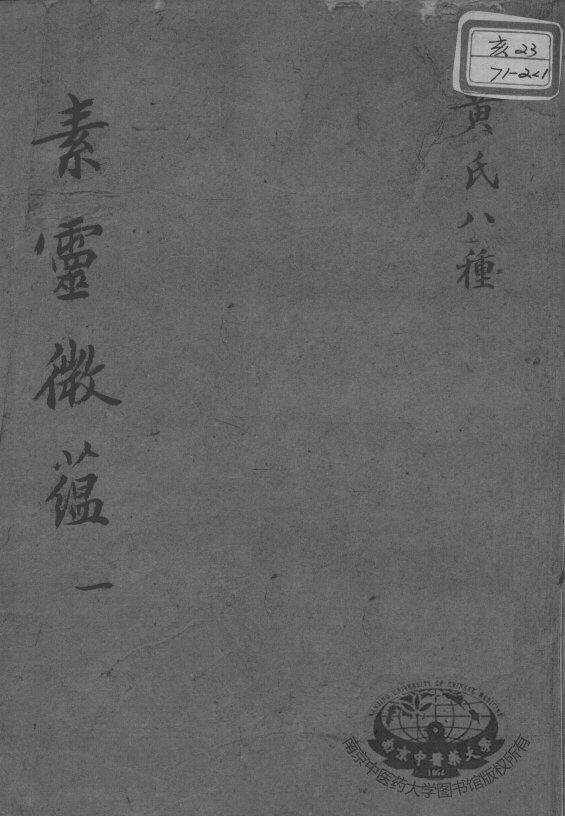 亥23
71-2<1
黄氏八種
素靈微蘊
一
NANJING UNIVERSITY OF CHINESE MEDICINE
南京中醫藥大學
1954
南京中医药大学图书馆版权所有